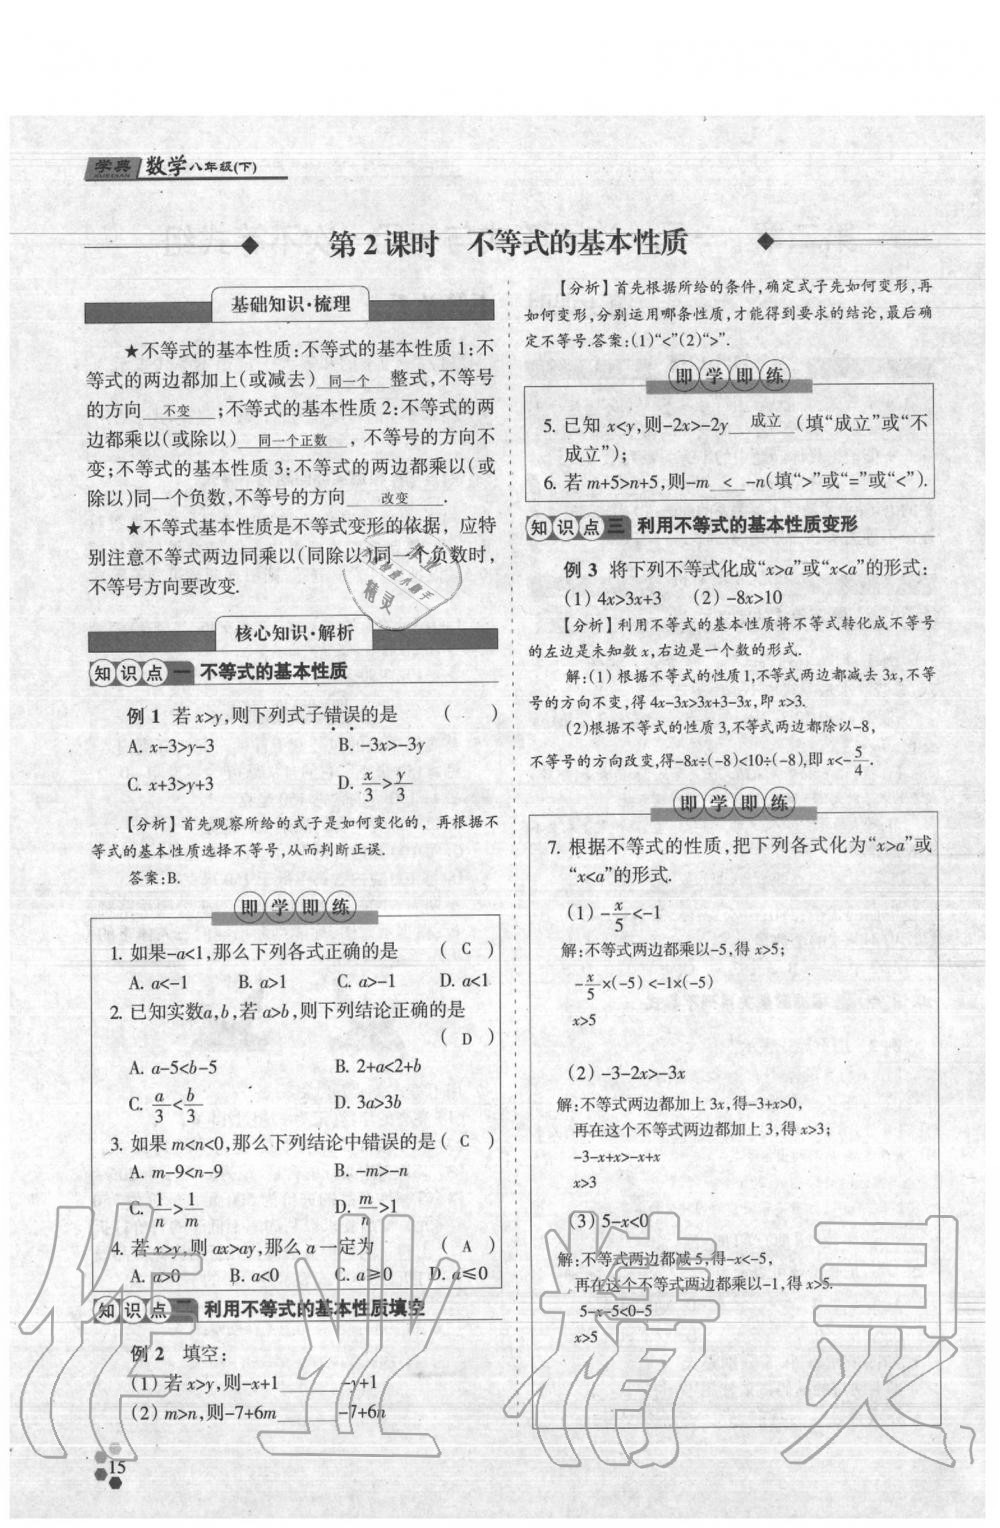 学典 XUEDIAN 数学八年级(下)
第2课时 不等式的基本性质
基础知识·梳理
★不等式的基本性质:不等式的基本性质1:不
等式的两边都加上(或减去) 同一个 整式,不等号
的方向 不变 ;不等式的基本性质2:不等式的两
边都乘以(或除以) 同一个正数 ,不等号的方向不
变;不等式的基本性质3:不等式的两边都乘以(或
除以)同一个负数,不等号的方向 改变 .
★不等式基本性质是不等式变形的依据，应特
别注意不等式两边同乘以(同除以)同一个负数时,
不等号方向要改变.
核心知识·解析
知识点一 不等式的基本性质
例1 若x>y,则下列式子错误的是 ( )
A. x-3>y-3 B. -3x>-3y
C. x+3>y+3 D. x/3>y/3
【分析】首先观察所给的式子是如何变化的，再根据不
等式的基本性质选择不等号,从而判断正误.
答案:B.
即学即练
1. 如果-a<1,那么下列各式正确的是 ( C )
A. a<-1 B. a>1 C. a>-1 D. a<1
2. 已知实数a,b,若a>b,则下列结论正确的是
( D )
A. a-5<b-5 B. 2+a<2+b
C. a/3<b/3 D. 3a>3b
3. 如果m<n<0,那么下列结论中错误的是 ( C )
A. m-9<n-9 B. -m>-n
C. 1/n>1/m D. m/n>1
4. 若x>y,则ax>ay,那么a一定为 ( A )
A. a>0 B. a<0 C. a≥0 D. a≤0
知识点二 利用不等式的基本性质填空
例2 填空:
(1)若x>y,则-x+1______-y+1
(2)m>n,则-7+6m______-7+6n
15
【分析】首先根据所给的条件,确定式子先如何变形,再
如何变形,分别运用哪条性质,才能得到要求的结论,最后确
定不等号.答案:(1)“<”(2)“>”.
即学即练
5. 已知x<y,则-2x>-2y 成立 (填“成立”或“不
成立”);
6. 若m+5>n+5,则-m < -n(填“>”或“=”或“<”).
知识点三 利用不等式的基本性质变形
例3 将下列不等式化成“x>a”或“x<a”的形式:
(1)4x>3x+3 (2)-8x>10
【分析】利用不等式的基本性质将不等式转化成不等号
的左边是未知数x,右边是一个数的形式.
解:(1)根据不等式的性质1,不等式两边都减去3x,不等
号的方向不变,得4x-3x>3x+3-3x,即x>3.
(2)根据不等式的性质3,不等式两边都除以-8,
不等号的方向改变,得-8x÷(-8)<10÷(-8),即x<-5/4.
即学即练
7. 根据不等式的性质,把下列各式化为“x>a”或
“x<a”的形式.
(1)-x/5<-1
解:不等式两边都乘以-5,得x>5;
-x/5×(-5)<-1×(-5)
x>5
(2)-3-2x>-3x
解:不等式两边都加上3x,得-3+x>0,
再在这个不等式两边都加上3,得x>3;
-3-x+x>-x+x
x>3
(3)5-x<0
解:不等式两边都减5,得-x<-5,
再在这个不等式两边都乘以-1,得x>5.
5-x-5<0-5
x>5
作业精灵